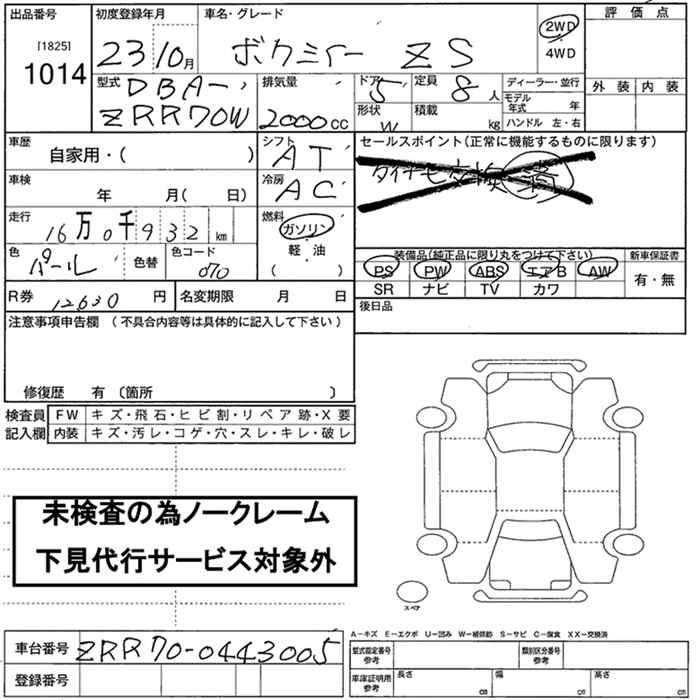 出品番号 初度登録年月 車名・グレード 評価点
[1825] 1014 23 10月 ボクシィー ZS 2WD ・ 4WD
型式 DBA- 排気量 ドア 5 定員 8人 ディーラー・並行 外装 内装
ZRR70W 2000cc 形状 W 積載 kg モデル年式 年
ハンドル 左・右
車歴 自家用・( ) シフト AT セールスポイント(正常に機能するものに限ります)
車検 年 月( 日) 冷房 AC ダイナモ交換済
走行 16万0千932km 燃料 ガソリン
軽・油
色 パール 色替 色コード 070 ( ・ )
装備品(純正品に限り丸をつけて下さい) 新車保証書
PS PW ABS エアB AW 有・無
SR ナビ TV カワ
R券 12630円 名変期限 月 日 後日品
注意事項申告欄(不具合内容等は具体的に記入して下さい)
修復歴 有〔箇所 〕
検査員 FW キズ・飛石・ヒビ割・リペア跡・X要
記入欄 内装 キズ・汚レ・コゲ・穴・スレ・キレ・破レ
未検査の為ノークレーム
下見代行サービス対象外
スペア
A－キズ E－エクボ U－凹み W－補修跡 S－サビ C－腐食 XX－交換済
車台番号 ZRR70-0443005 型式指定番号 参考 類別区分番号 参考
登録番号 車庫証明用 参考 長さ cm 幅 cm 高さ cm